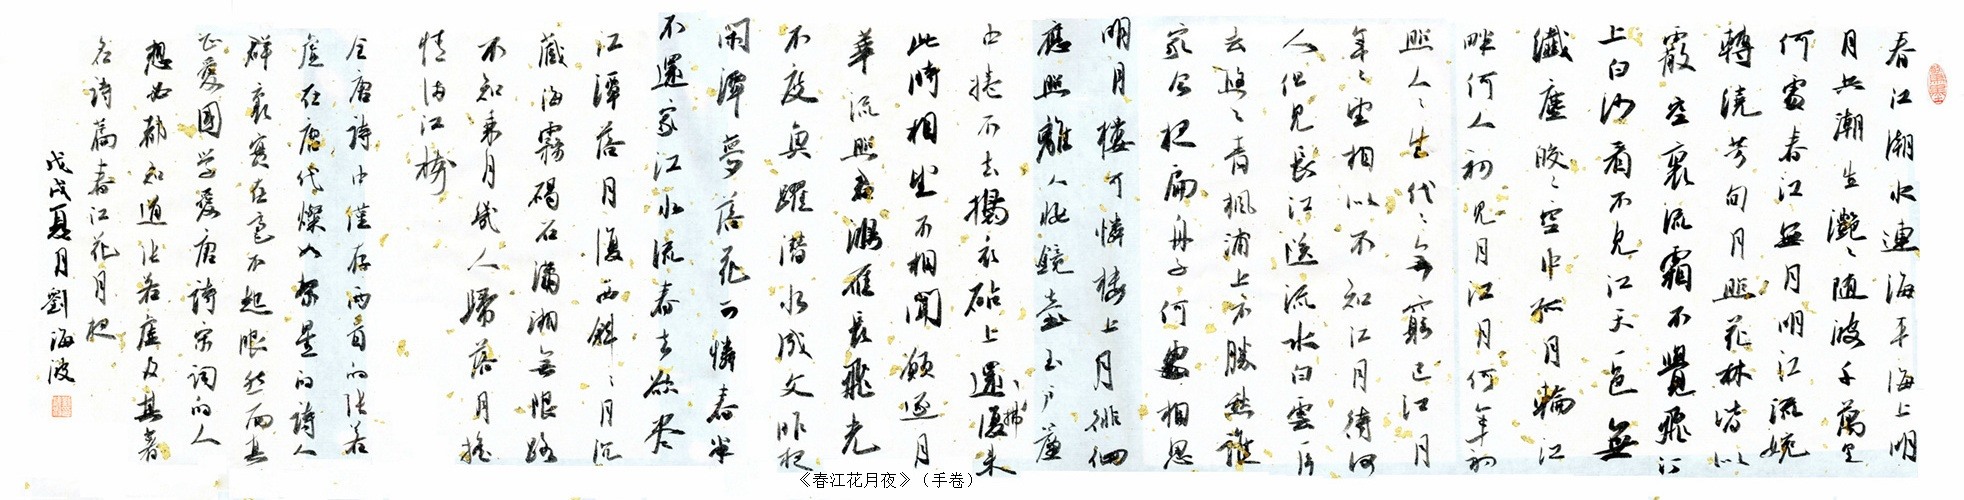 春江潮水連海平海上明
月共潮生灧〻随波千萬里
何處春江無月明江流婉
轉繞芳甸月照花林皆似
霰空裏流霜不覺飛汀
上白沙看不見江天一色無
纖塵皎〻空中孤月輪江
畔何人初見月江月何年初
照人〻生代〻無窮已江月
年〻望相似不知江月待何
人但見長江送流水白雲一片
去悠〻青楓浦上不勝愁誰
家今夜扁舟子何處相思
明月樓可憐樓上月徘徊
應照離人妝鏡臺玉户簾
中捲不去擣衣砧上拂還復来
此時相望不相聞願逐月
華流照君鴻雁長飛光
不度魚躍潜水成文昨夜
閑潭夢落花可憐春半
不還家江水流春去欲盡
江潭落月復西斜〻月沉
藏海霧碣石瀟湘無限路
不知乘月幾人歸落月摇
情满江樹
全唐詩中僅存两首的張若
虚在唐代燦如繁星的詩人
群裏實在是不起眼然而真
正愛國学愛唐詩宋詞的人
想必都知道張若虚及其著
名詩篇春江花月夜
戊戌夏月劉海波
《春江花月夜》（手卷）